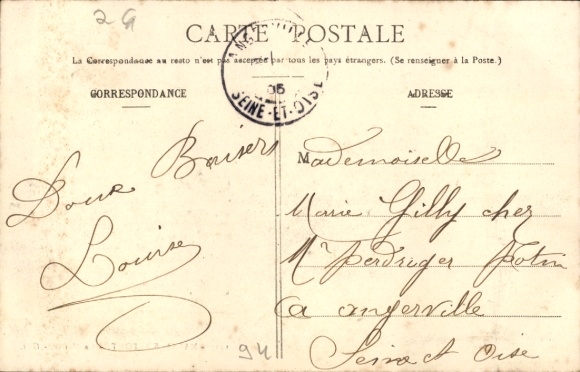 2G
CARTE POSTALE
La Correspondance au recto n'est pas acceptée par tous les pays étrangers. (Se renseigner à la Poste.)
CORRESPONDANCE
ADRESSE
ANGERVILLE
05
SEINE-ET-OISE
Doux Baisers
Louise
Mademoiselle
Marie Gilly chez
Mr perdriger Potin
a angerville
Seine et Oise
94